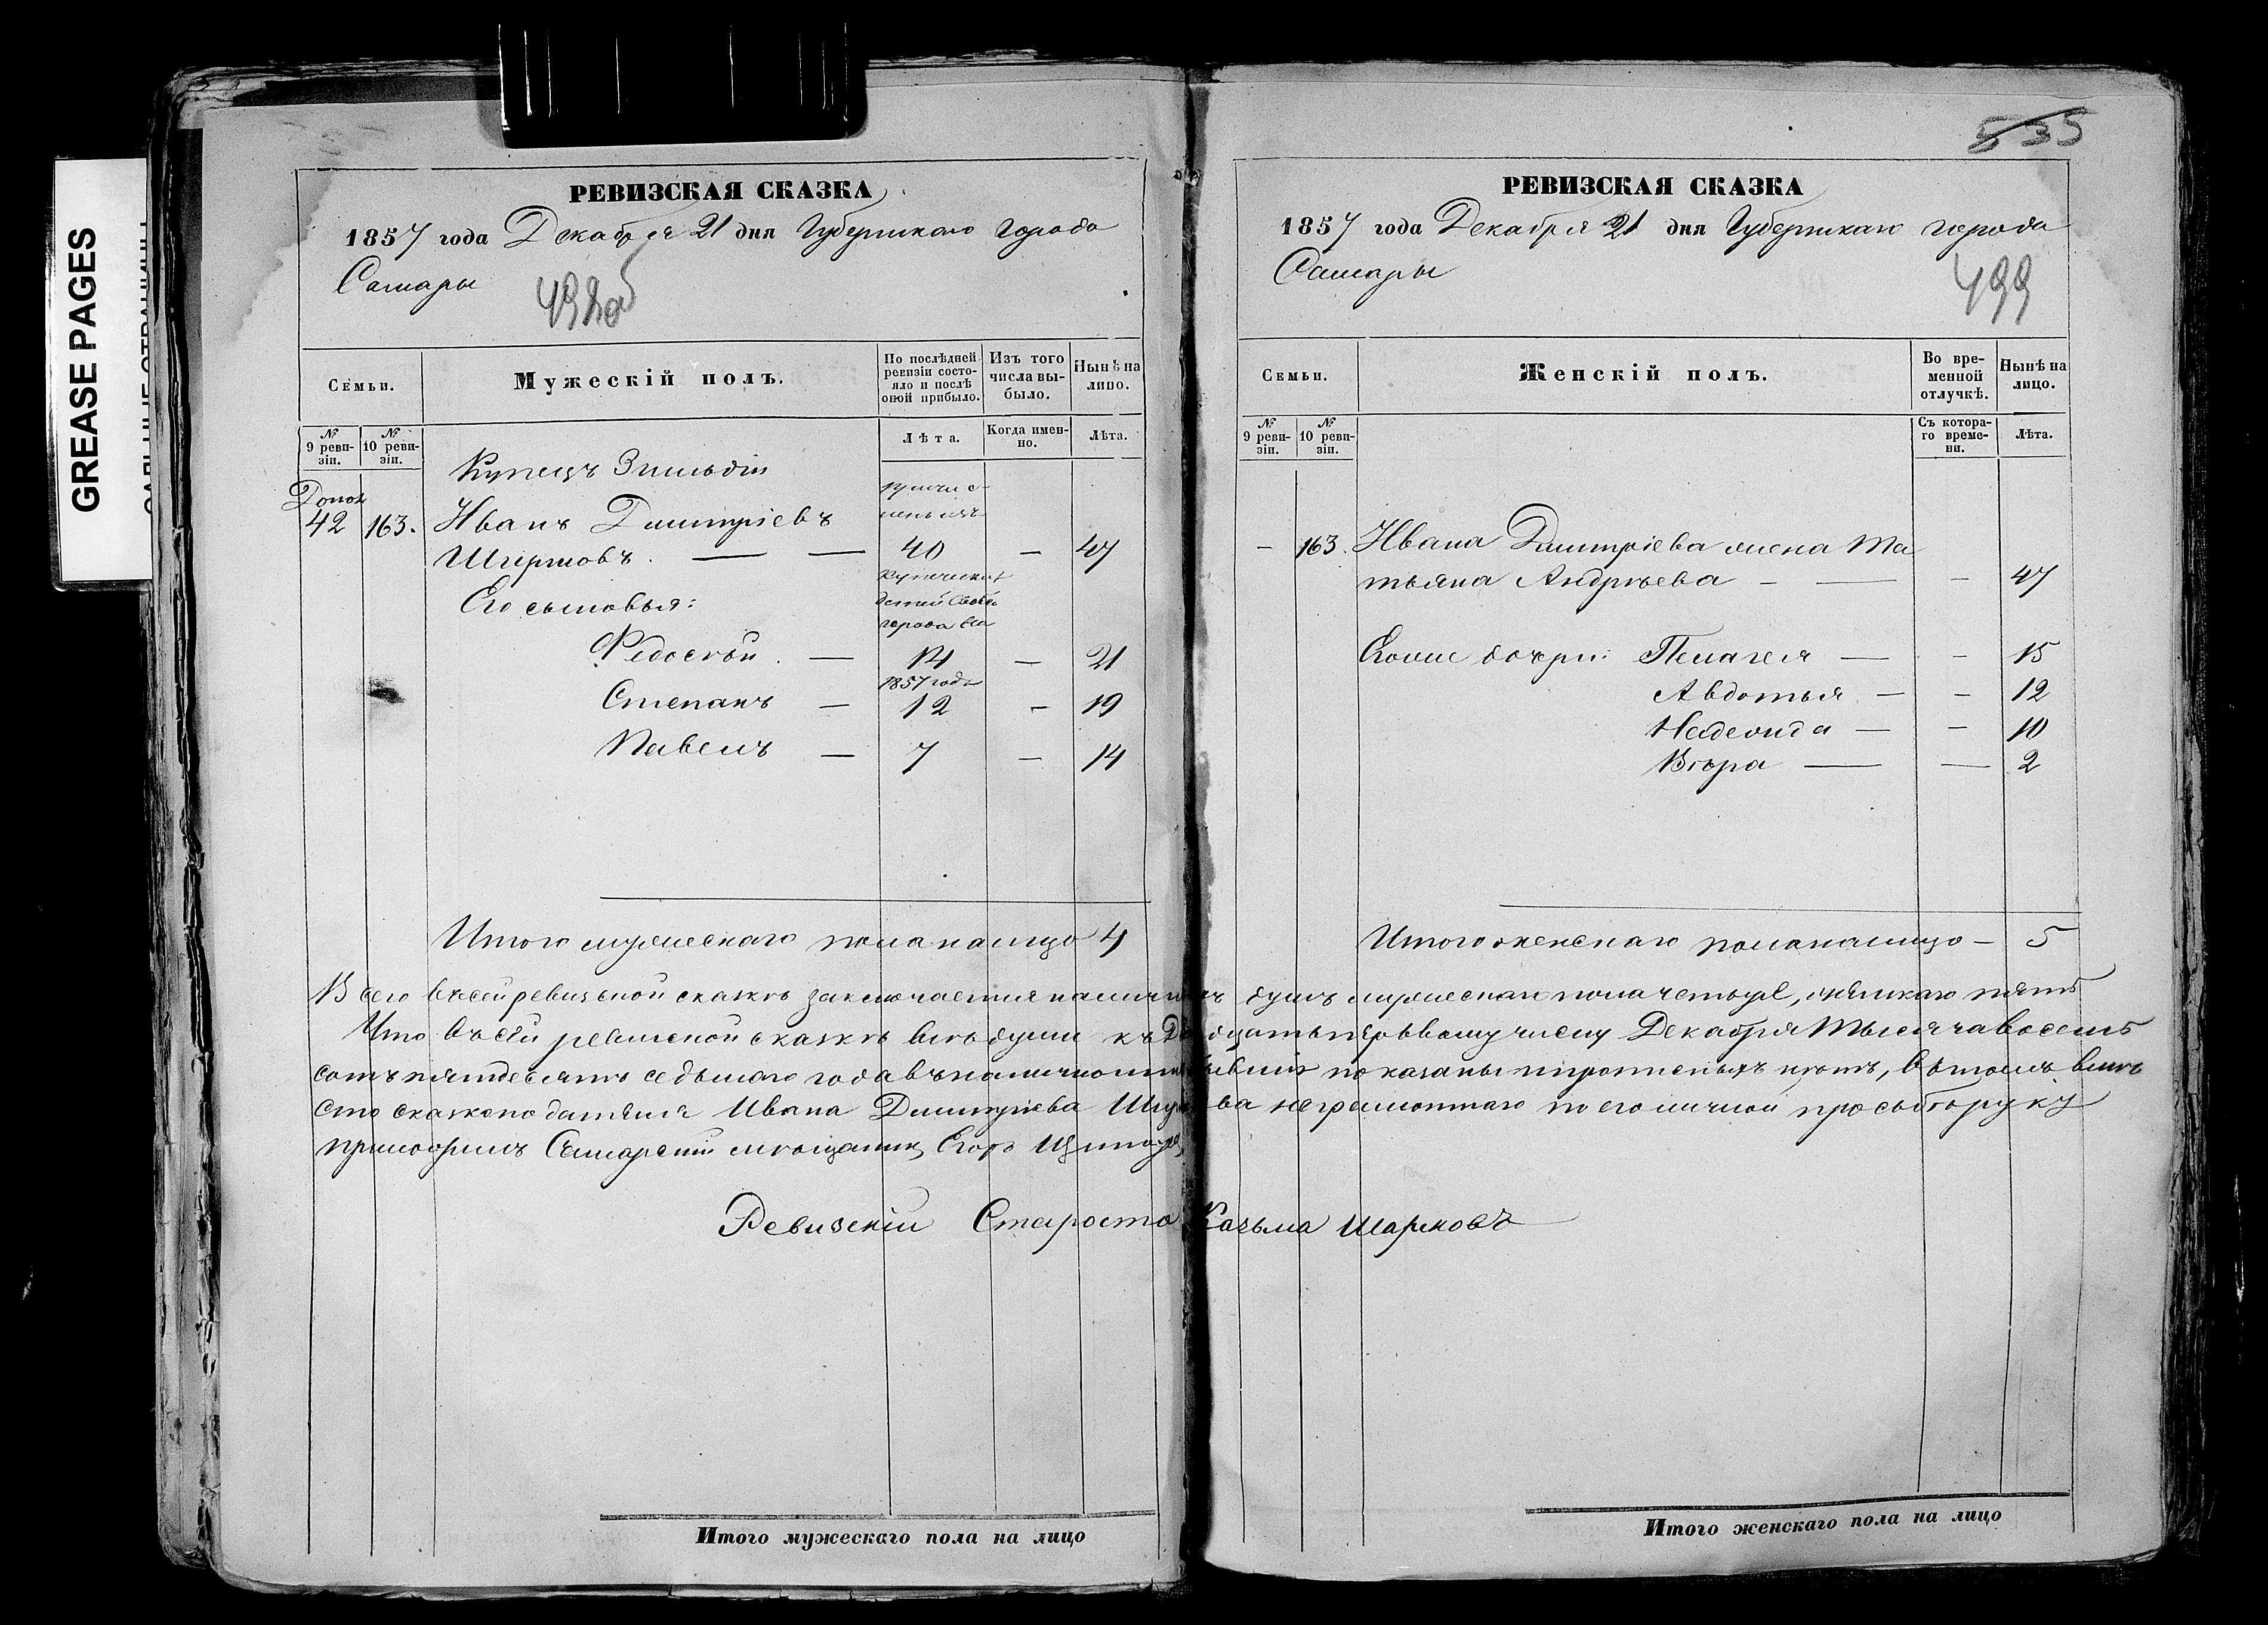 GREASE PAGES
РЕВИЗСКАЯ СКАЗКА
1857 года Декабря 21 дня Губернскаго города
Самары
498об
Семьи.
Мужескій полъ.
По послѣдней ревизіи состояло и послѣ оной прибыло.
Изъ того числа выбыло.
Нынѣ на лицо.
№ 9 ревизіи.
№ 10 ревизіи.
Лѣта.
Когда именно.
Лѣта.
Купецъ 3 гильдіи
Допол
42 163. Иванъ Дмитріевъ
40 — 47
Его сыновья:
Федосѣй. — 14 — 21
1857 года
Степанъ — 12 — 19
Павелъ — 7 — 14
Итого мужескаго пола налицо 4
РЕВИЗСКАЯ СКАЗКА
535
1857 года Декабря 21 дня Губернскаго города
Самары
499
Семьи.
Женскій полъ.
Во временной отлучкѣ.
Нынѣ на лицо.
№ 9 ревизіи.
№ 10 ревизіи.
Съ котораго времени.
Лѣта.
— 163. Ивана Дмитріева жена Та
тьяна Андрѣева — — — 47
дочери: Пелагея — — 15
Авдотья — — 12
Надежда — — 10
Вѣра — — 2
Итого женскаго пола налицо — 5
Всего въ сей ревизской сказкѣ заключается наличныхъ душъ мужескаго пола четыре, женскаго пять
Что въ сей ревизской сказкѣ всѣ души къ двадцать первому числу Декабря тысяча восемь
сотъ пятдесятъ седьмаго года въ наличности бывшія показаны и прописныхъ нѣтъ, въ томъ вмѣ
сто сказкоподателя Ивана Дмитріева неграмотнаго по его личной просьбѣ руку
приложилъ Самарскій мѣщанинъ Егоръ
Ревизскій Староста Козьма Шарковъ
Итого мужескаго пола на лицо
Итого женскаго пола на лицо